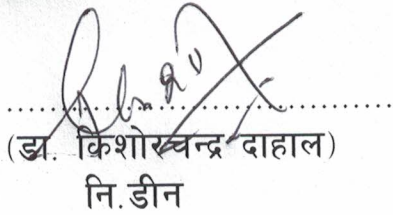 (डा. किशोरचन्द्र दाहाल)
नि.डीन